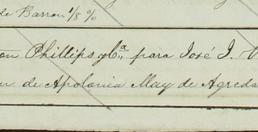 de Barron 1/8 %
Phillips y Ca. para José J.
de Apolonia May de Agreda